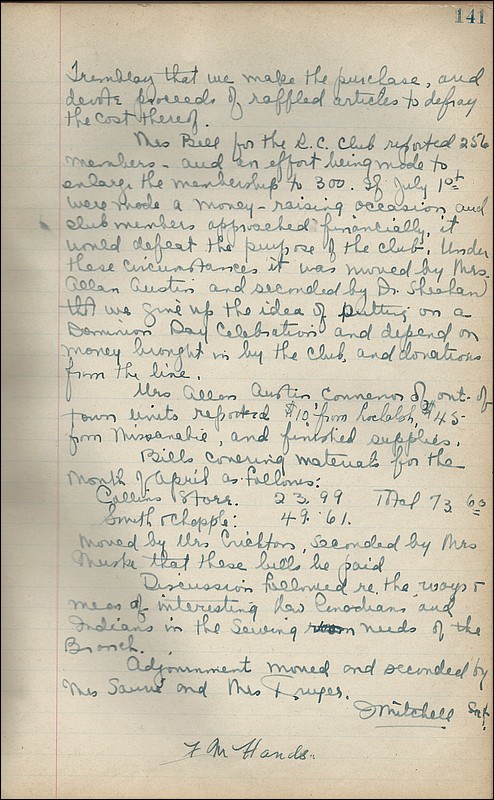 141
Tremblay that we make the purchase, and
devote proceeds of raffled articles to defray
the cost thereof.
Mrs Bell for the R.C. Club reported 256
members - and an effort being made to
enlarge the membership to 300. If July 1st
were made a money-raising occasion and
club members approached financially, it
would defeat the purpose of the club. Under
these circumstances it was moved by Mrs.
Allan Austin and seconded by Dr. Sheahan
that we give up the idea of putting on a
Dominion Day Celebration and depend on
money brought in by the club, and donations
from the line.
Mrs Allan Austin convenor of out-of
town units reported $10 from Lochalsh, $45-
from Missanabie, and finished supplies.
Bills covering materials for the
month of April as follows:
Collins Store. 23.99 Total 73.60
Smith & Chapple: 49.61.
Moved by Mrs Crichton, seconded by Mrs
that these bills be paid
Discussion followed re. the ways &
means of interesting New Canadians and
Indians in the Sewing room needs of the
Branch.
Adjournment moved and seconded by
Mrs Sauvé and Mrs
J Mitchell Sect.
F M Hands.